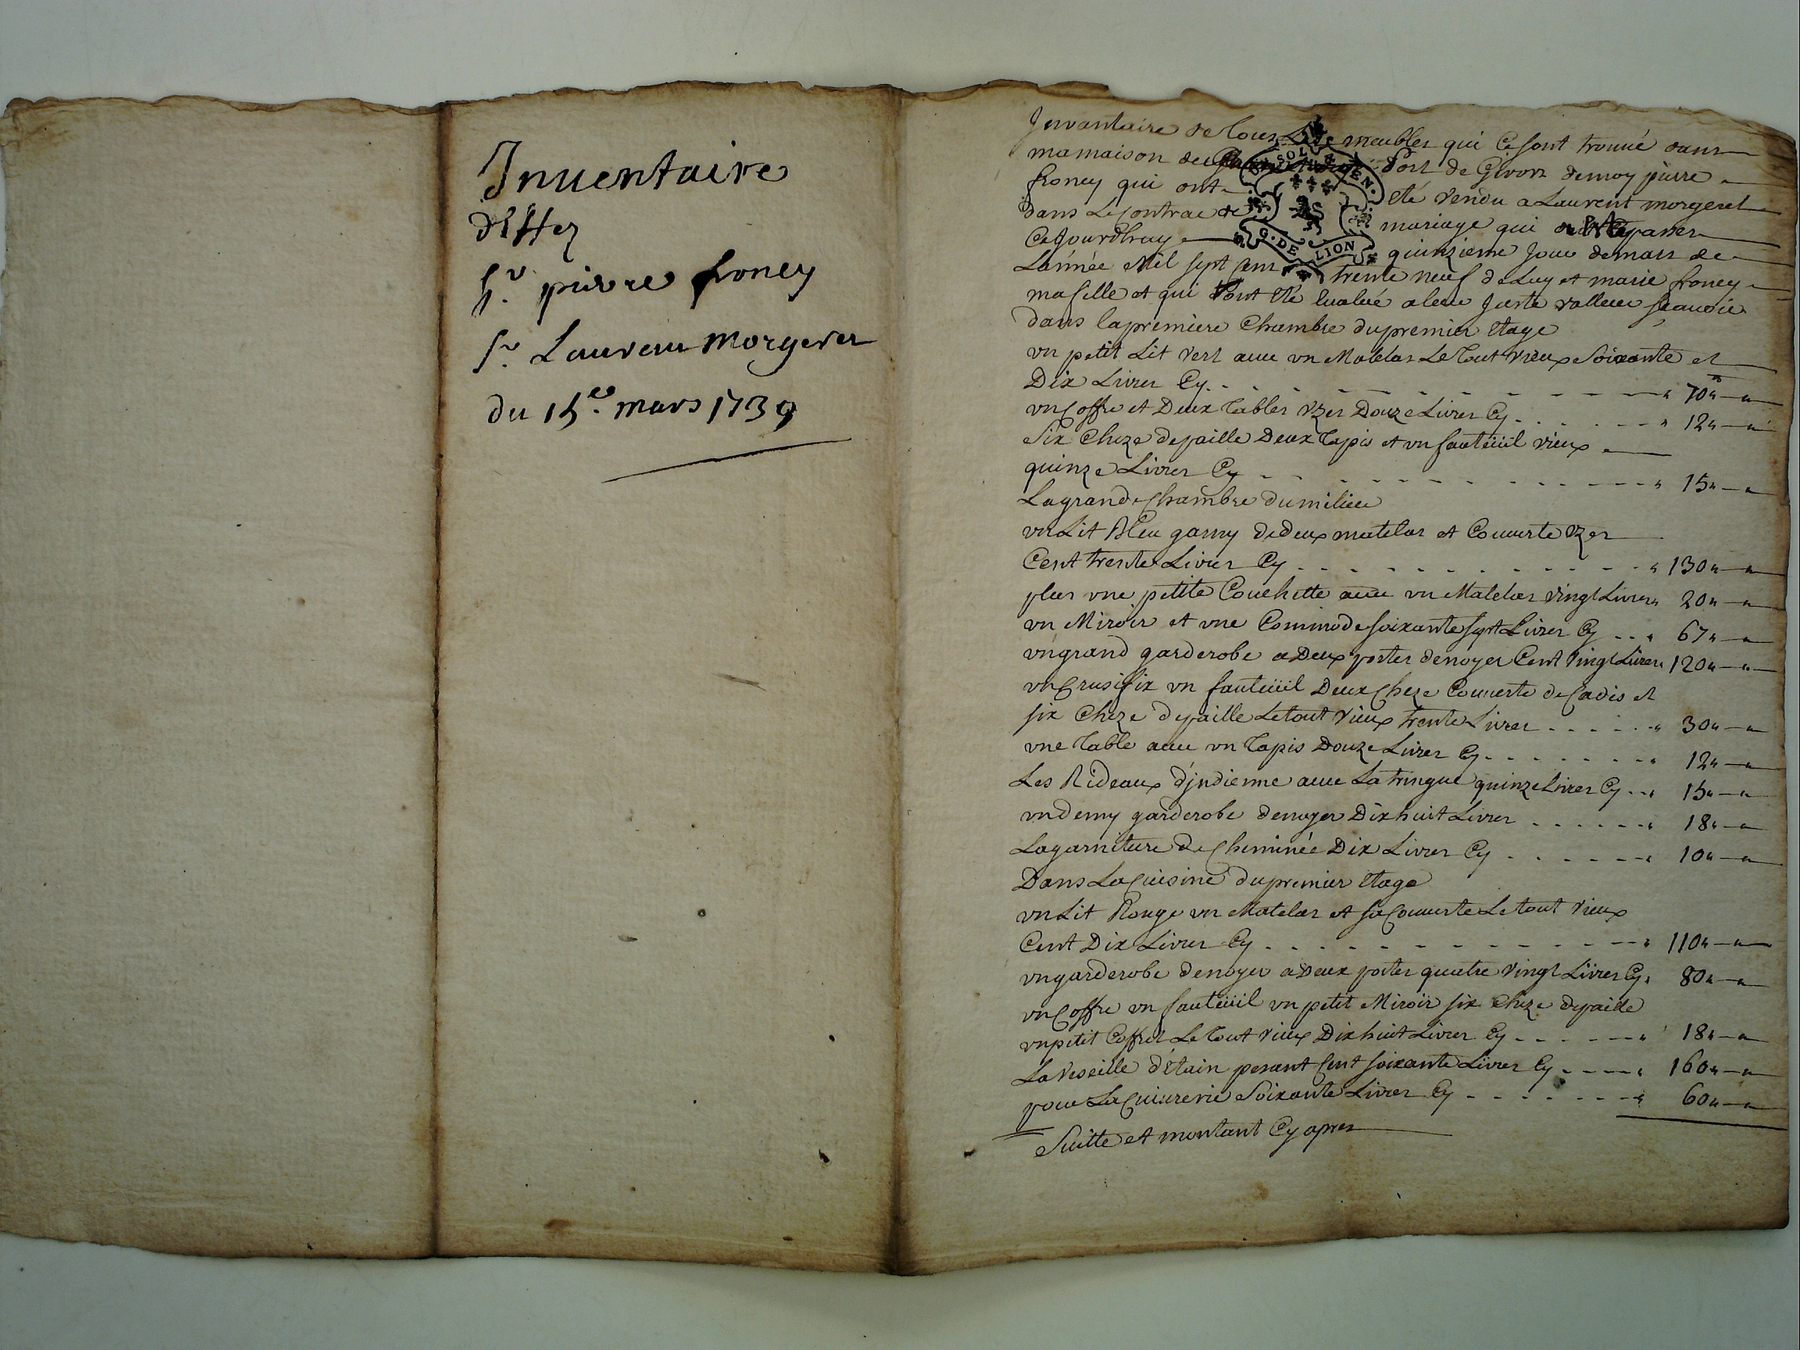 Inventaire
d'Effez
Sr. pierre froney
Sr Laurent Morgeret
du 15e. mars 1739
Jnvantaire de tous Les meubles qui Ce sont trouvé dans
ma maison de Port de Givors de moy pierre
froney qui ont Eté vendu a Laurent morgeret
dans Le Contrac de mariage qui
Ce Jourdhuy quinzieme Jour de mars de
L'année Mil sept Cens trente neuf de Luy et marie froney
ma fille et qui Sont Eté Evalué a leur Juste valleur scauoir
dans la premiere Chambre du premier Etage
vn petit Lit vert auec vn Matelas Le Tout vieux Soixante et
Dix Livres Cy 70" "
vn Coffre et Deux Tables vzes Douze Livres Cy 12" "
Six Cheze de paille Deux Tapis et vn fauteüil vieux
quinze Livres Cy 15" "
La grande Chambre du milieu
vn Lit Bleu garny de deux matelas et Couuerte vzes
Cent trente Livres Cy 130" "
plus vne petite Couchette auec vn Matelas vingt Livres 20" "
vn Miroir et vne Commode soixante sept Livres Cy 67" "
vn grand garderobe a Deux portes de noyer Cent vingt Livres 120" "
vn Crusifix vn fauteüil Deux Cheze Couuerte de Cadis et
six Cheze de paille Le tout vieux trente Livres 30" "
vne Table auec vn Tapis Douze Livres Cy 12" "
Les Rideaux d'jndienne auec La tringue quinze Livres Cy 15" "
vn demy garderobe de noyer Dix huit Livres 18" "
La garniture de Cheminée Dix Livres Cy 10" "
Dans La Cuisine du premier Etage
vn Lit Rouge vn Matelas et sa Couuerte Le tout vieux
Cent Dix Livres Cy 110" "
vn garderobe de noyer a Deux portes quatre vingt Livres Cy 80" "
vn Coffre vn fauteüil vn petit Miroir six Cheze de paille
vn petit Coffret Le Tout vieux Dix huit Livres Cy 18" "
La Veseille d'Etain pesant Cent soixante Livres Cy 160" "
pour La Cuiurerie Soixante Livres Cy 60" "
Suitte et montant Cy apres
G. DE LION